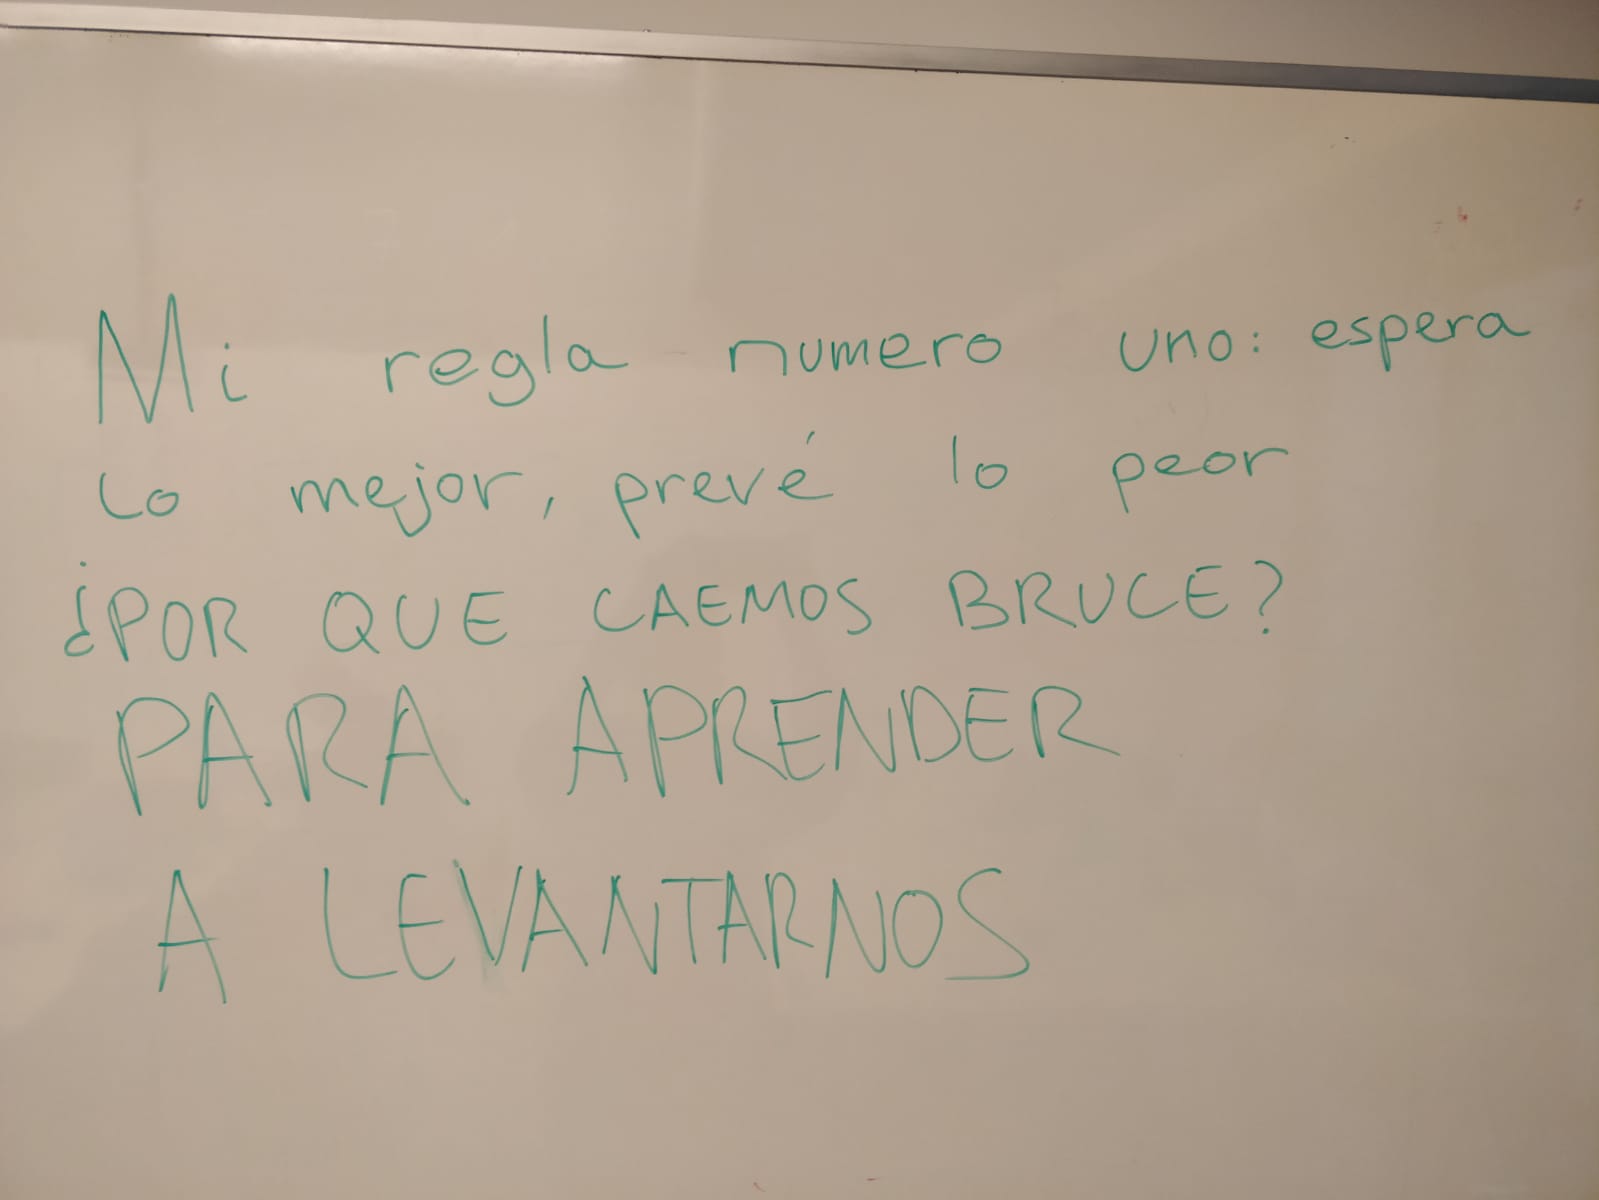 Mi regla numero uno: espera
lo mejor, prevé lo peor
¿POR QUE CAEMOS BRUCE?
PARA APRENDER
A LEVANTARNOS